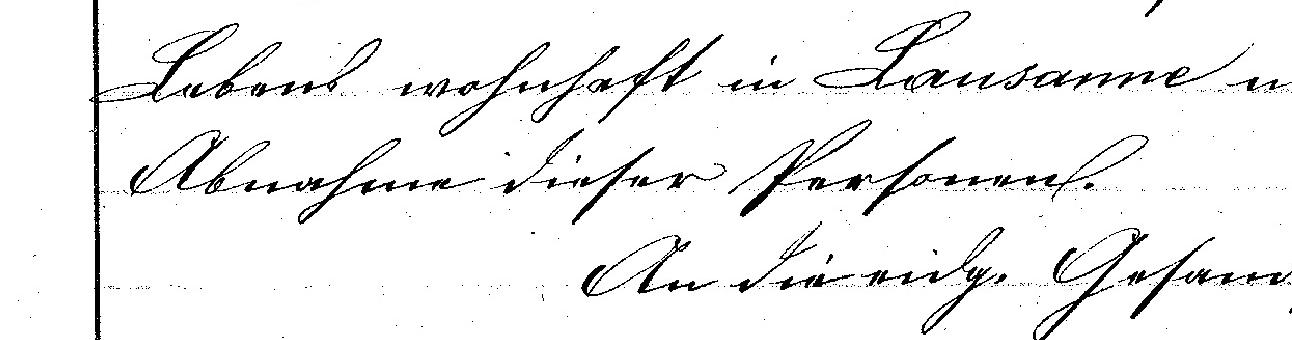 Lebens wohnhaft in Lausanne u
Abnahme dieser Personen.
An die eidg. Gesan